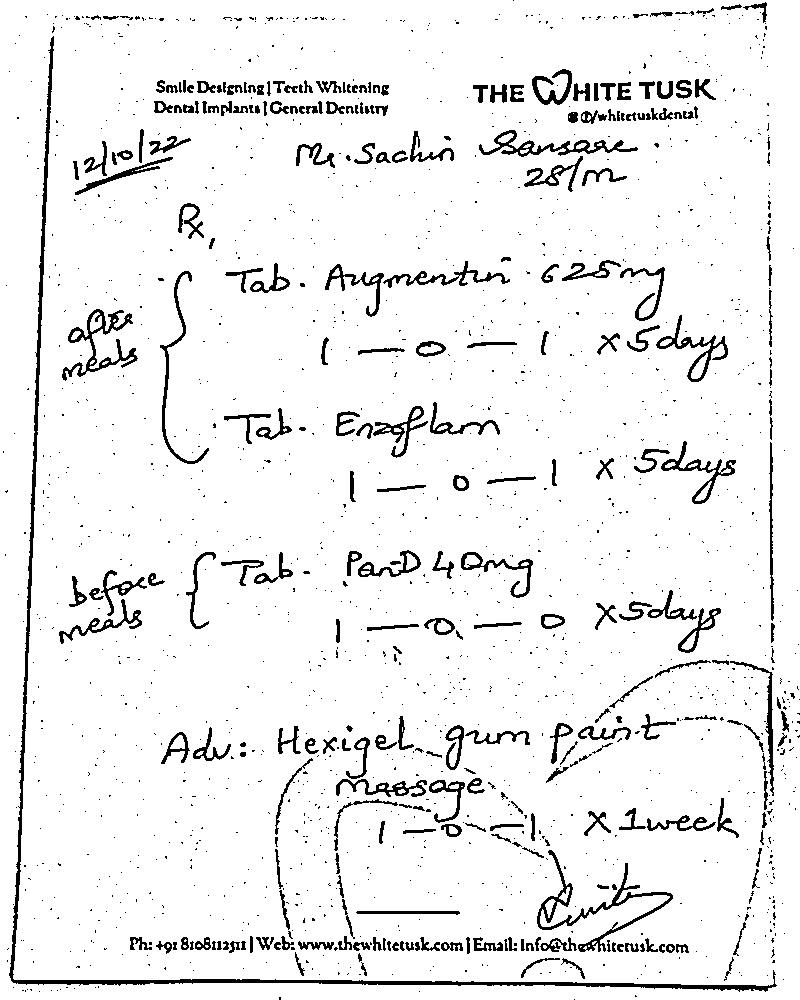 Smile Designing | Teeth Whitening
Dental Implants | General Dentistry
THE WHITE TUSK
/whitetuskdental
12/10/22
Mr. Sachin Sansare.
28/M
Rx,
after meals
Tab. Augmentin 625mg
1 — 0 — 1 x 5 days
Tab. Enzoflam
1 — 0 — 1 x 5 days
before meals
Tab. PanD 40mg
1 — 0 — 0 x 5 days
Adv: Hexigel gum paint
massage
1 — 0 — 1 x 1 week
Ph: +91 8108112511 | Web: www.thewhitetusk.com | Email: info@thewhitetusk.com